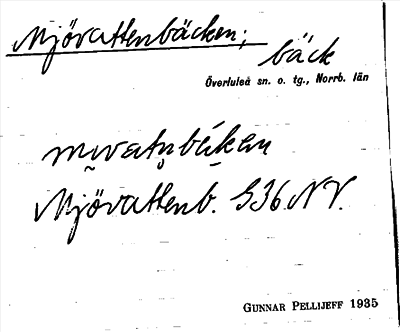 Mjövattenbäcken;
bäck
Överluleå sn. o. tg., Norrb. län
Mjövattenb. S36 NV.
GUNNAR PELLIJEFF 1935